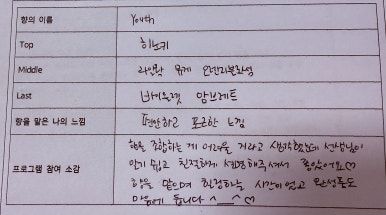 향의 이름 Youth
Top 히노키
Middle 라일락 뮤게 오렌지블라썸
Last 바이올렛 암브레트
향을 맡은 나의 느낌 편안하고 포근한 느낌
프로그램 참여 소감
향을 조합하는 게 어려울 거라고 생각했는데 선생님이
알기 쉽고 친절하게 설명해주셔서 좋았어요♡
향을 맡으며 힐링하는 시간이었고 완성품도
마음에 듭니다 ^__^♡